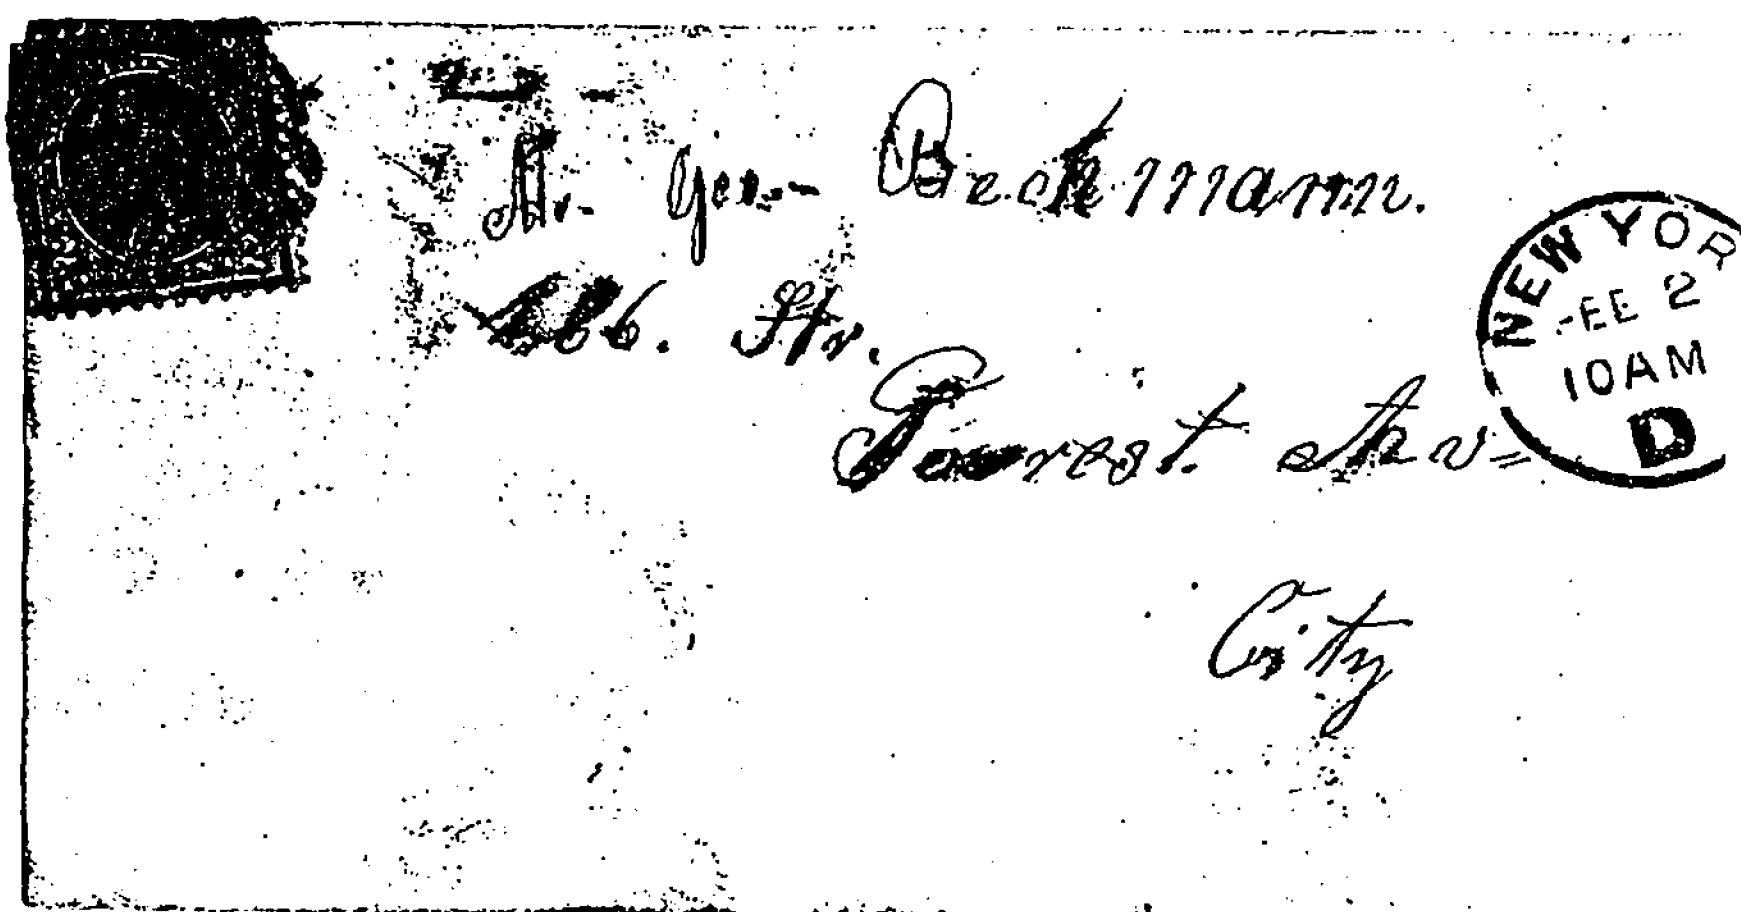 Mr. Geo. Beckmann.
166. Str.
Forrest Av=
City
NEW YOR
FEB 2
10AM
D